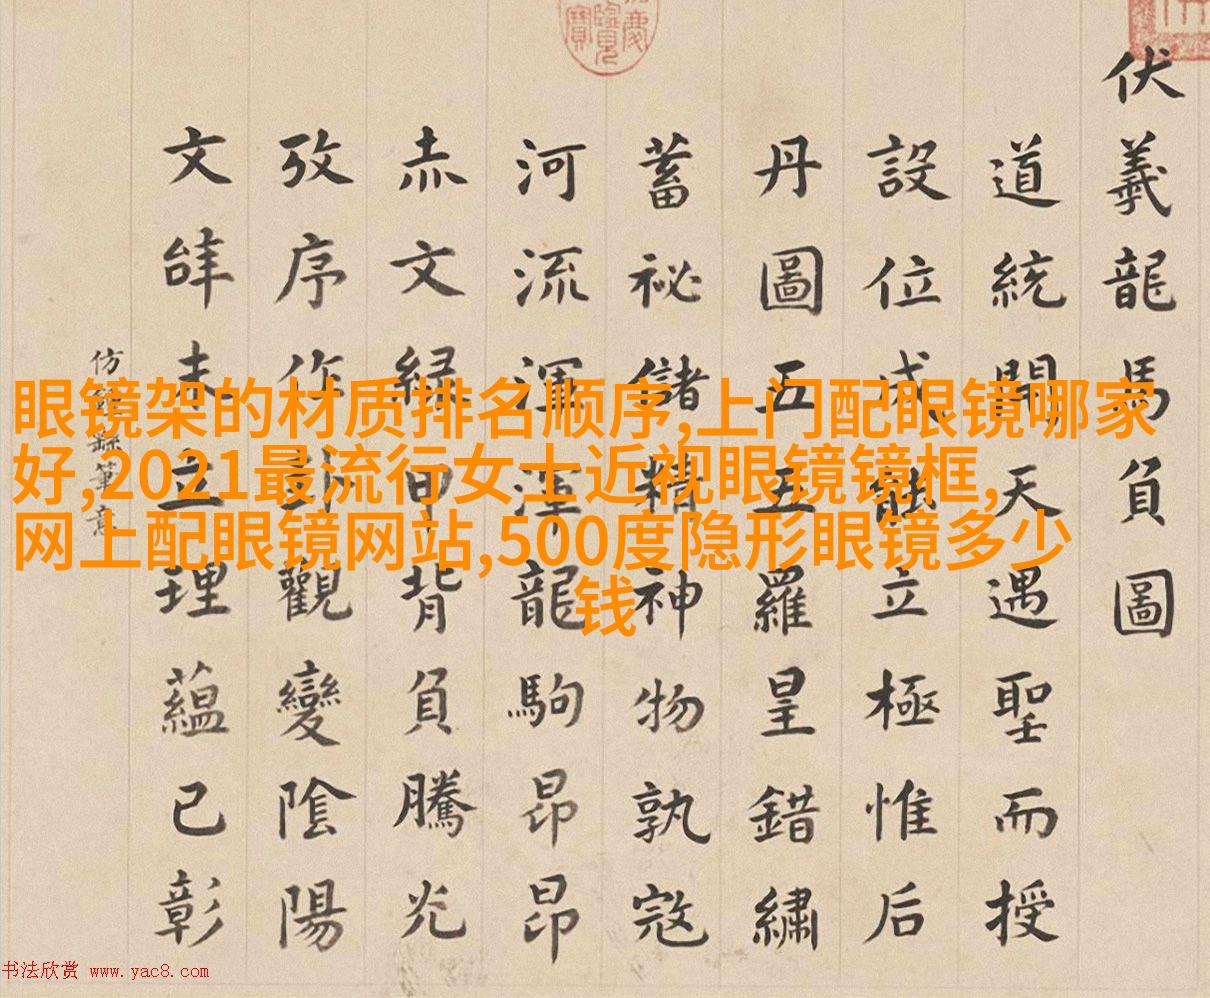 伏羲龍馬負圖
道統開天遇聖而授
設位成能立極惟后
丹圖五五羅皇錯繡
蓄祕儲精神物孰寇
河流渾渾龍駒昂昂
赤文緑甲背負騰炗
攷序作則觀變陰陽
文未立理蘊已彰
仿鍾繇筆意
眼镜架的材质排名顺序,上门配眼镜哪家
好,2021最流行女士近视眼镜镜框,
网上配眼镜网站,500度隐形眼镜多少
钱
书法欣赏 www.yac8.com